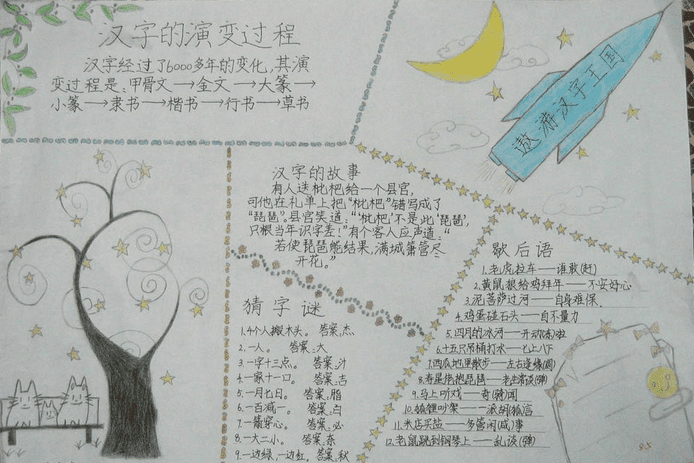 汉字的演变过程
汉字经过了6000多年的变化,其演
变过程是:甲骨文→金文→大篆→
小篆→隶书→楷书→行书→草书
遨游汉字王国
汉字的故事
有人送枇杷给一个县官,
可他在礼单上把“枇杷”错写成了
“琵琶”。县官笑道:“‘枇杷’不是此‘琵琶’,
只恨当年识字差!”有个客人应声道:“
若使琵琶能结果,满城箫管尽
开花。”
猜字谜
1.4个人搬木头。 答案:杰
2.一人。 答案:大
3.一字十三点。 答案:汁
4.一家十一口。 答案:吉
5.一月七日。 答案:脂
6.一百减一。 答案:白
7.一箭穿心。 答案:必
8.一大二小。 答案:奈
9.一边绿,一边红。 答案:秋
歇后语
1.老虎拉车——谁敢(赶)
2.黄鼠狼给鸡拜年——不安好心
3.泥菩萨过河——自身难保、
4.鸡蛋碰石头——自不量力
5.四月的冰河——开动(冻)啦
6.十五只吊桶打水——七上八下
7.西瓜地里散步——左右逢缘(圆)
8.寿星抱琵琶——老生常谈(弹)
9.马上听戏——奇(骑)闻
10.狐狸吵架——
11.米店买盐——多管闲(咸)事
12.老鼠跳到钢琴上——乱谈(弹)